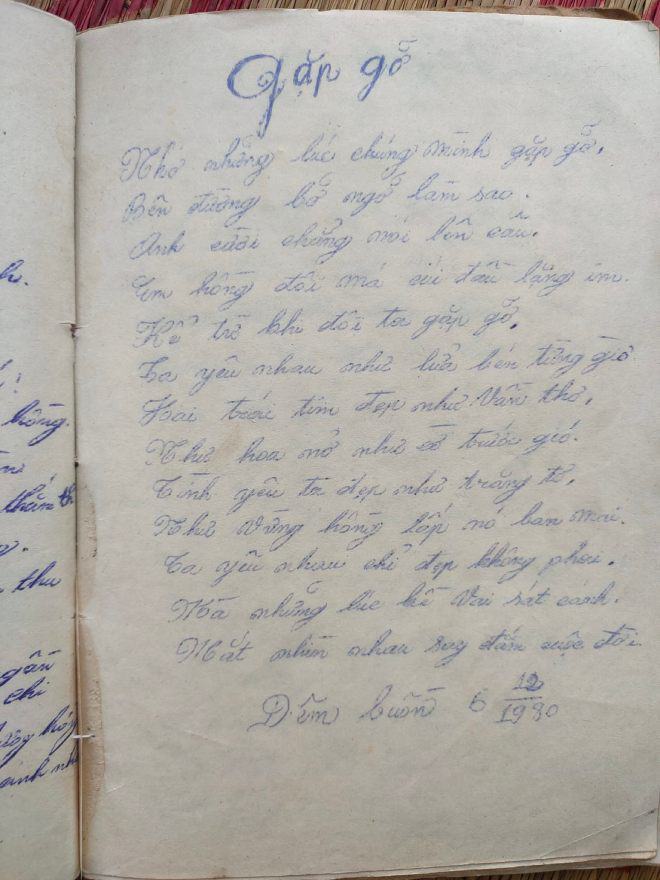 Gặp gỡ
h.
Nhớ những lúc chúng mình gặp gỡ,
Bên đường bỡ ngỡ làm sao.
Anh cười chẳng nói lên câu.
Em hồng đôi má cúi đầu lặng im.
Kể từ khi đôi ta gặp gỡ,
Ta yêu nhau như lửa bén từng giờ
Hai trái tim đẹp như vần thơ,
Như hoa nở như trước gió.
Tình yêu ta đẹp như trăng tơ,
Như vừng hồng ló ban mai.
Ta yêu nhau chỉ đẹp không phai,
Mà những lúc kề vai sát cánh.
Mắt nhìn nhau say đắm cuộc đời
Đêm buồn 6 12/1980
hồng.
thu
gần
chi